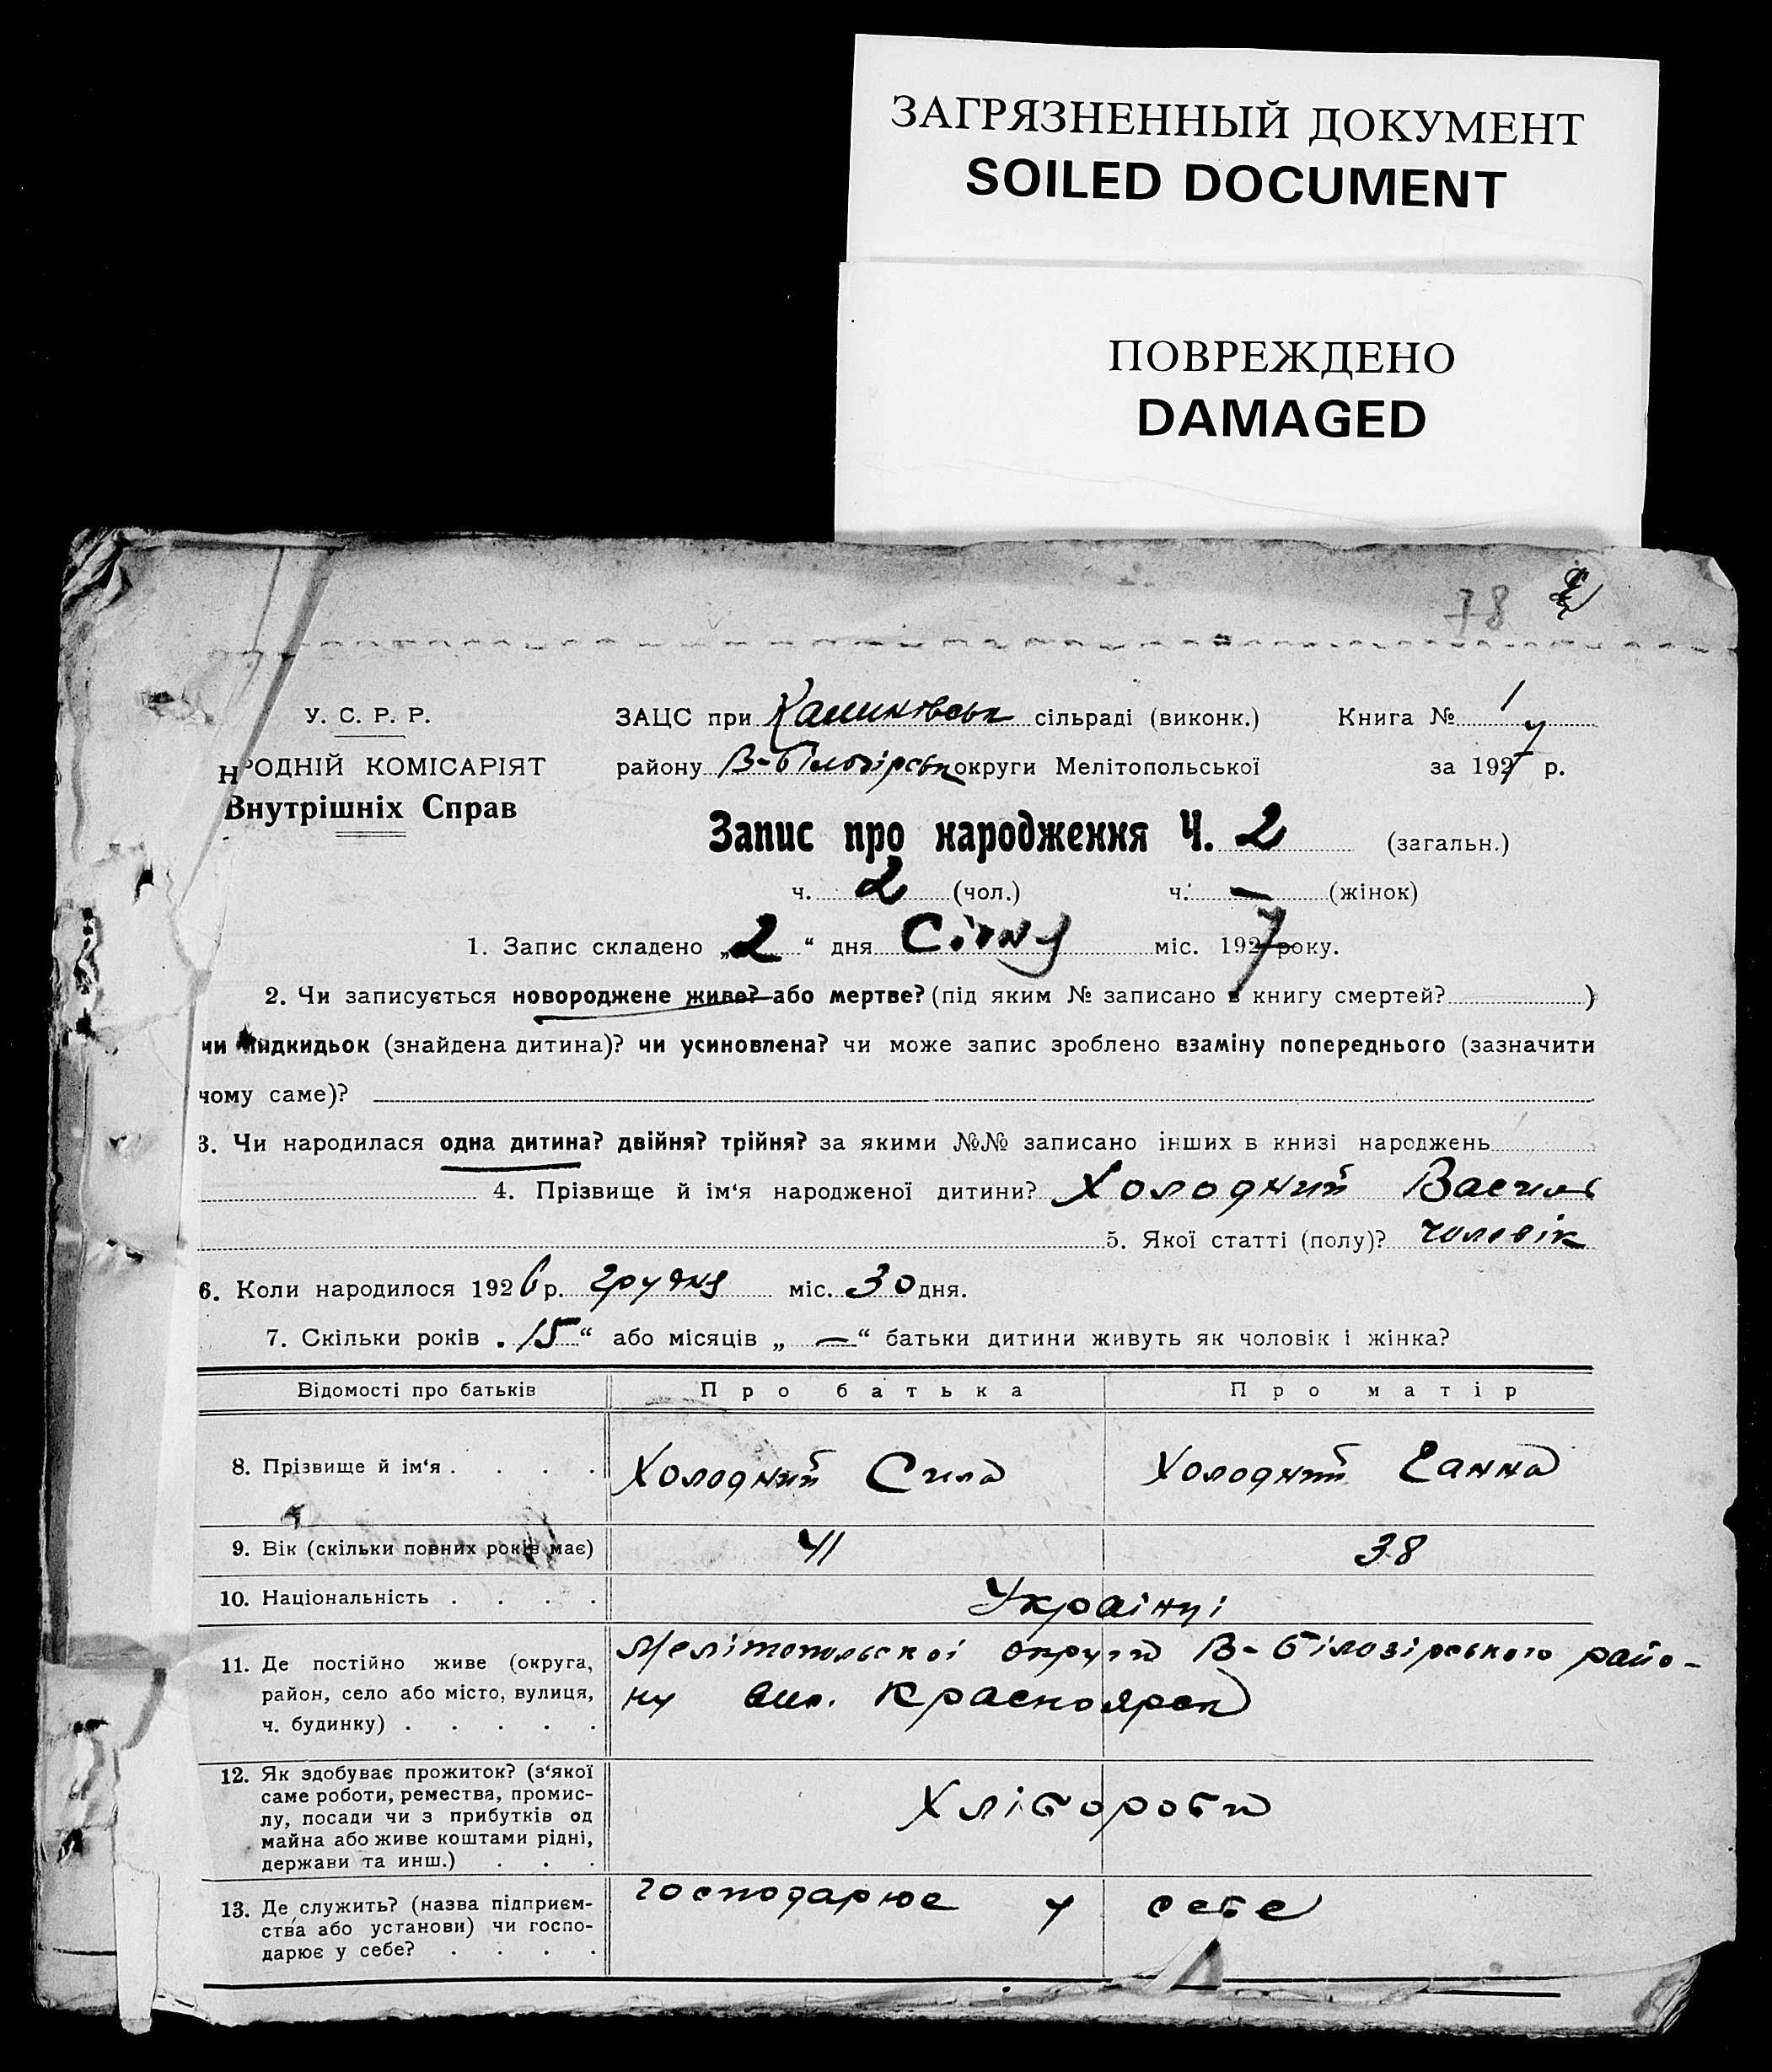 ЗАГРЯЗНЕННЫЙ ДОКУМЕНТ
SOILED DOCUMENT
ПОВРЕЖДЕНО
DAMAGED
78
У. С. Р. Р.
НРОДНІЙ КОМІСАРІЯТ
Внутрішніх Справ
ЗАЦС при сільраді (виконк.) Книга № 1
району В-Білозірськ округи Мелітопольської за 1927 р.
Запис про народження Ч. 2 (загальн.)
ч. 2 (чол.) ч. — (жінок)
1. Запис складено „2“ дня Січня міс. 1927 року.
2. Чи записується новороджене живе? або мертве? (під яким № записано в книгу смертей? )
чи підкидьок (знайдена дитина)? чи усиновлена? чи може запис зроблено взаміну попереднього (зазначити
чому саме)?
3. Чи народилася одна дитина? двійня? трійня? за якими №№ записано інших в книзі народжень
4. Прізвище й ім‘я народженої дитини? Холодний Василь
5. Якої статті (полу)? чоловік
6. Коли народилося 1926 р. грудня міс. 30 дня.
7. Скільки років „15“ або місяців „—“ батьки дитини живуть як чоловік і жінка?
Відомості про батьків Про батька Про матір
8. Прізвище й ім‘я . . . . Холодний Сила Холодний Ганна
9. Вік (скільки повних років має) 41 38
10. Національність . . . . Українці
11. Де постійно живе (округа,
район, село або місто, вулиця,
ч. будинку) . . . . .
Мелітопольскоі округи В-Білозірського райо-
ну Красноярск
12. Як здобуває прожиток? (з‘якої
саме роботи, ремества, промис-
лу, посади чи з прибутків од
майна або живе коштами рідні,
держави та инш.) . . .
Хлібороби
13. Де служить? (назва підприєм-
ства або установи) чи госпо-
дарює у себе? . . . .
господарюе у себе